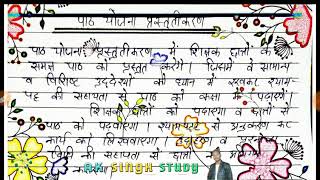 पाठ योजना प्रस्तुतीकरण
पाठ योजना प्रस्तुतीकरण में शिक्षक छात्रों के
समक्ष पाठ को प्रस्तुत करेंगे। जिसमें वे सामान्य
व विशिष्ट उद्देश्यों को ध्यान में रखकर श्याम-
पट्ट की सहायता से पाठ को कक्षा में पढ़ायेंगे।
शिक्षक छात्रों को पढ़ाएगा व छात्रों से
पाठ को पढ़वाएगा। श्यामपट्ट से
कार्य को लिखवाएगा। व प्रस्तुत
की सहायता से छात्रों
AK SINGH STUDY